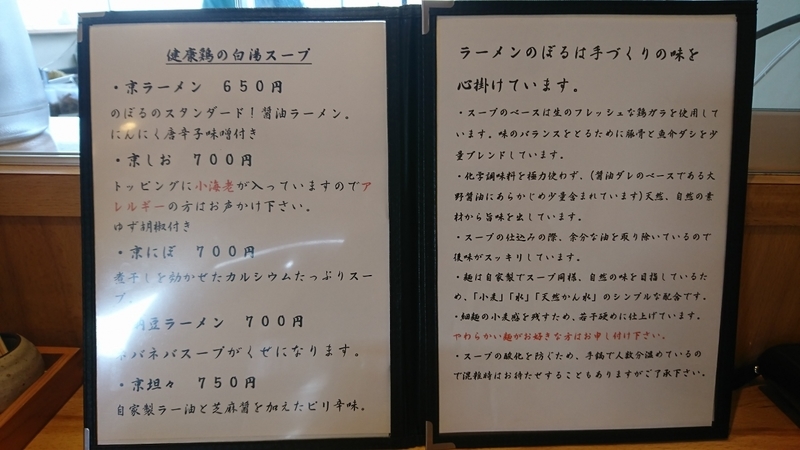 健康鶏の白湯スープ
・京ラーメン　６５０円
のぼるのスタンダード！醤油ラーメン。
にんにく唐辛子味噌付き
・京しお　７００円
トッピングに小海老が入っていますのでア
レルギーの方はお声かけ下さい。
ゆず胡椒付き
・京にぼ　７００円
煮干しを効かせたカルシウムたっぷりスー
プ。
豆ラーメン　７００円
バネバスープがくせになります。
・京坦々　７５０円
自家製ラー油と芝麻醤を加えたピリ辛味。
ラーメンのぼるは手づくりの味を
心掛けています。
・スープのベースは生のフレッシュな鶏ガラを使用して
います。味のバランスをとるために豚骨と魚介ダシを少
量ブレンドしています。
・化学調味料を極力使わず、(醤油ダレのベースである大
野醤油にあらかじめ少量含まれています)天然、自然の素
材から旨味を出しています。
・スープの仕込みの際、余分な油を取り除いているので
後味がスッキリしています。
・麺は自家製でスープ同様、自然の味を目指しているた
め、「小麦」「水」「天然かん水」のシンプルな配合です。
・細麺の小麦感を残すため、若干硬めに仕上げています。
やわらかい麺がお好きな方はお申し付け下さい。
・スープの酸化を防ぐため、手鍋で人数分温めているの
で混雑時はお待たせすることもありますがご了承下さい。